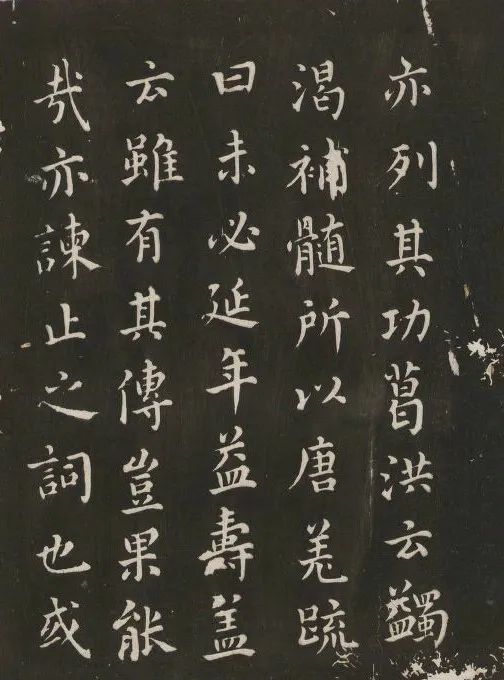 亦列其功葛洪云蠲
渴補髓所以唐羌疏
曰未必延年益壽盖
云雖有其傳豈果能
哉亦諫止之詞也或